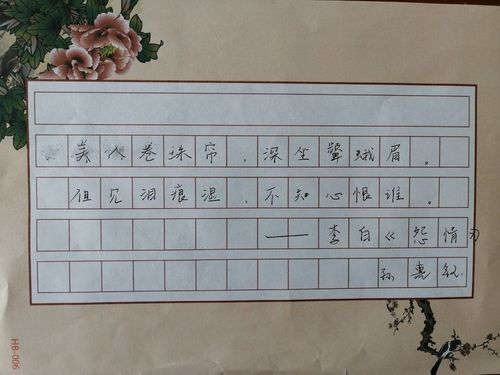 美人卷珠帘，深坐颦蛾眉。
但见泪痕湿，不知心恨谁。
——李白《怨情》
孙惠
HB-006